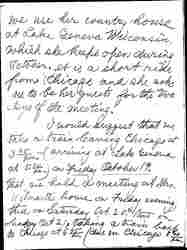 we use her country house
at Lake Geneva Wisconsin
which she keeps open during
October. It is a short ride
from Chicago and she asks
us to be her guests for the two
days of the meeting.
I would suggest that we
take a train leaving Chicago at
arriving at Lake Geneva
at on Friday October 19th
that we hold a meeting at Mrs.
house on Friday evening,
this on Saturday Oct 20th
a train back
to Chicago at due in Chicago